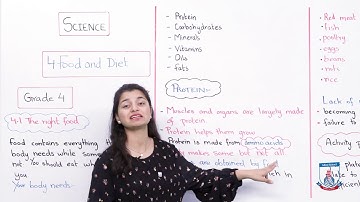 Science
4-food and Diet
Grade 4
4.1 The right food
food contains everything th
body needs while some
not. You should eat wh
you
Your body needs:
- Protein
- Carbohydrates
- Minerals
- Vitamins
- Oils
- fats
Protein:-
- Muscles and organs are largely made
of protein
- Protein helps them grow
Protein is made from amino acids
makes some but not all.
are obtained by f
ch in
• Red meat
• fish
• poultry
• eggs
• beans
• nuts
• rice
Lack of
becoming
failure to
Activity
plate